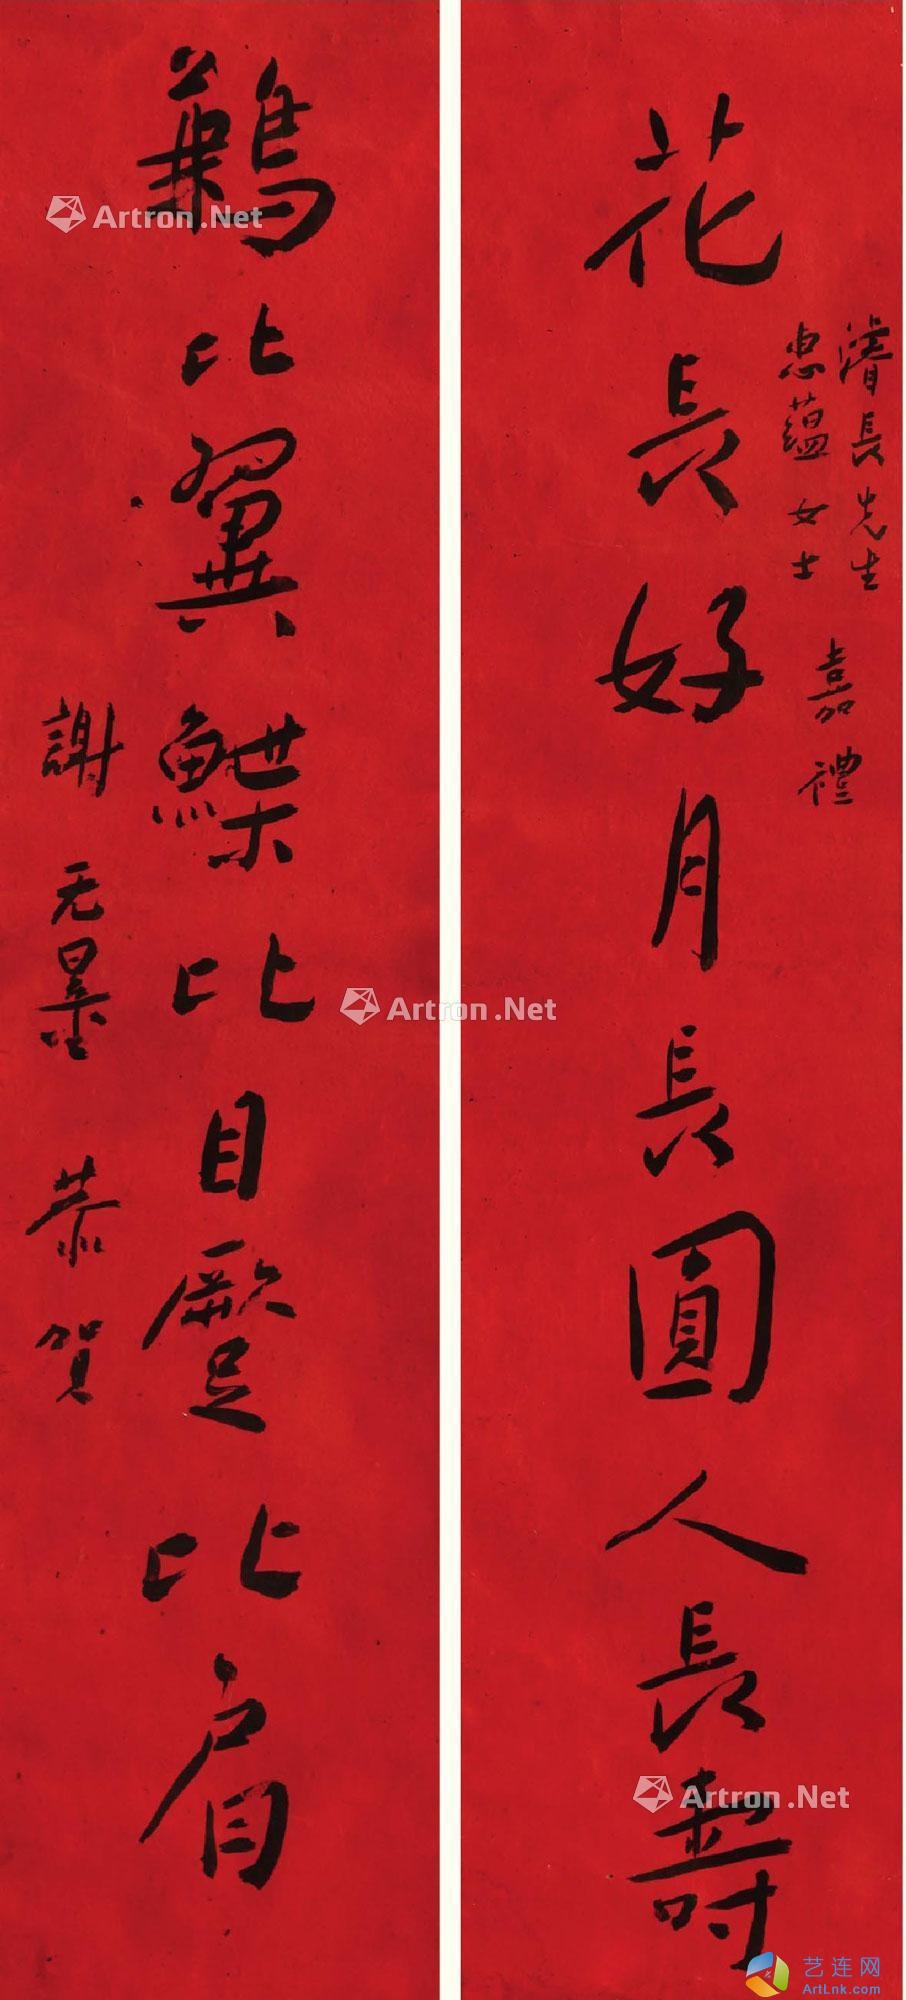 花長好月長圓人長壽
濬長先生
惠蘊女士
嘉禮
鶼比翼鰈比目蹷比肩
謝无量 恭賀
Artron.Net
Artron.Net
Artron.Net
艺连网
ArtLnk.com